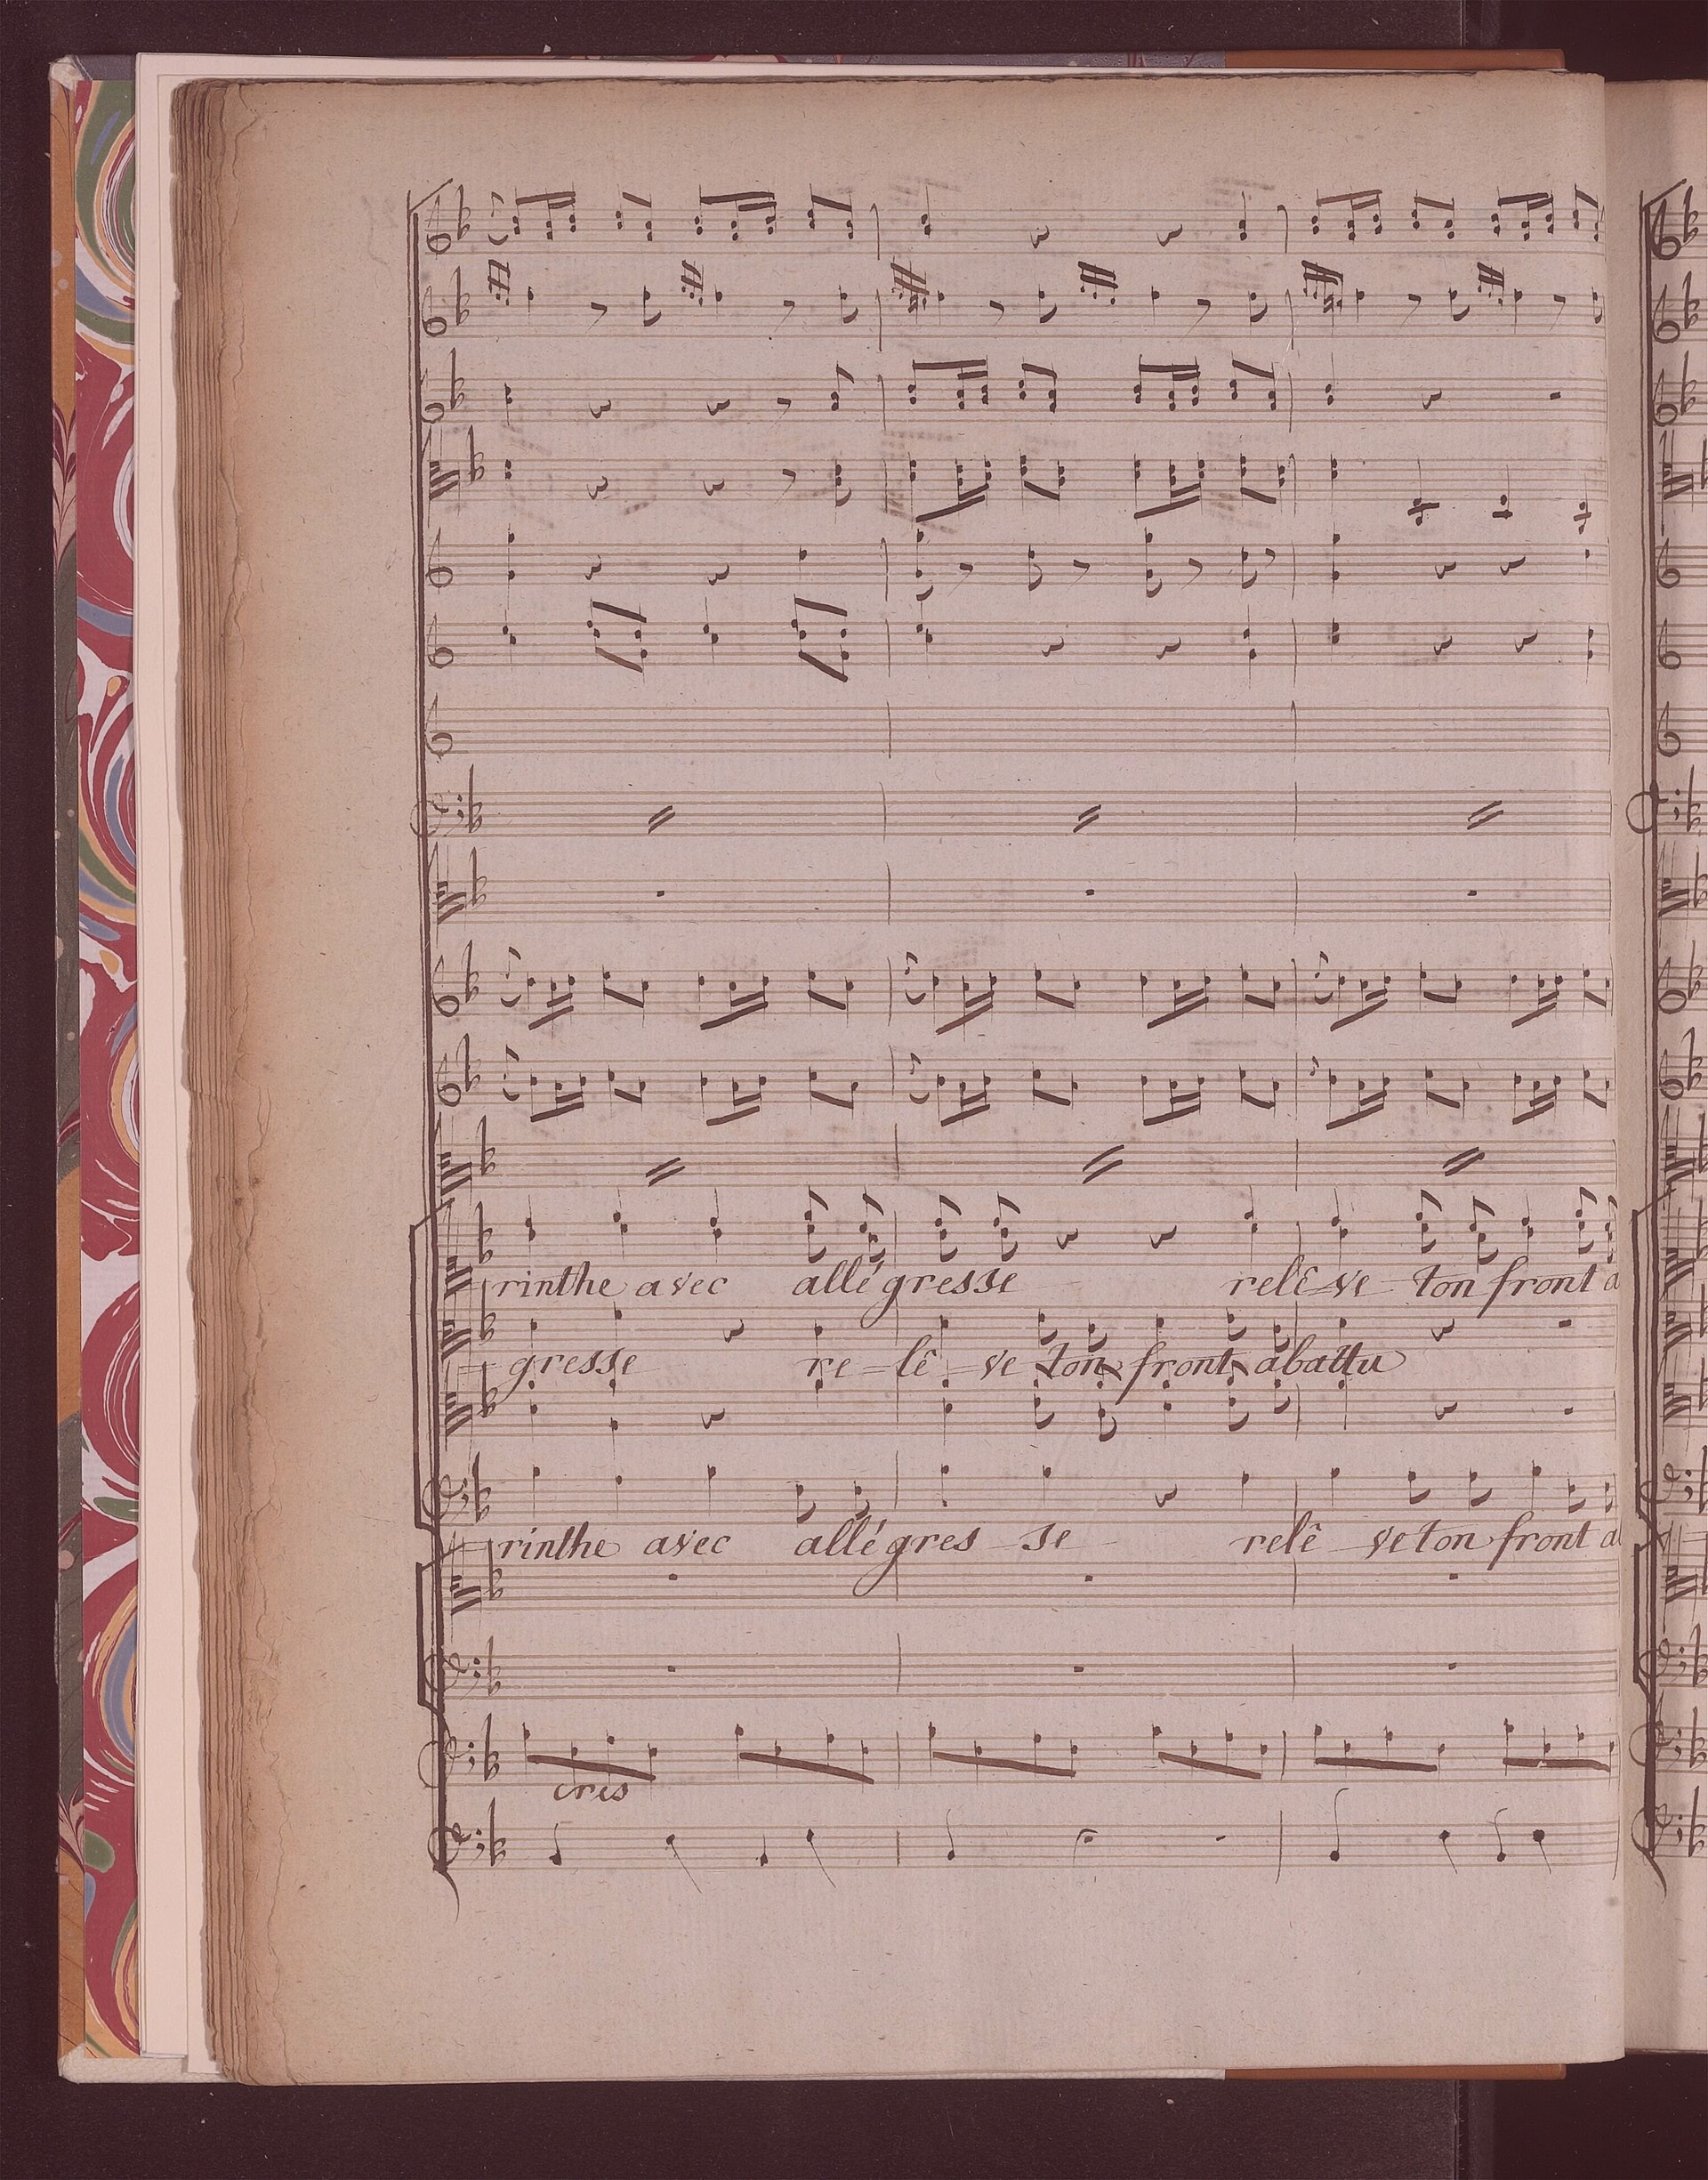 rinthe avec allégresse relê-ve ton front a
gresse re-lê-ve ton front abattu
rinthe avec allégres-se relê-ve ton front a
cres